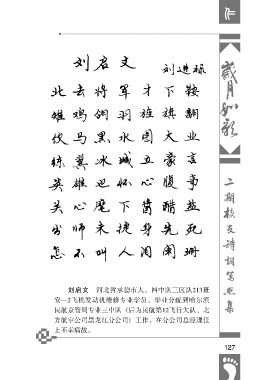 刘启文
刘进禄
北去将军才下鞍
雄鸡翎羽旌旗翻
伏马黑水图大业
练翼冰城立豪言
英雄也怀心腹事
关心麾下酱醋盐
出师未捷身先死
怎不叫人泪阑珊
刘启文 河北省承德市人。四中队三区队213班
安—2飞机发动机维修专业学员。毕业分配到哈尔滨
民航京管局专业三中队(后为民航第12飞行大队、北
方航空公司黑龙江分公司)工作。在分公司总经理任
上不幸病故。
岁月如歌
二期校友诗词写照集
127